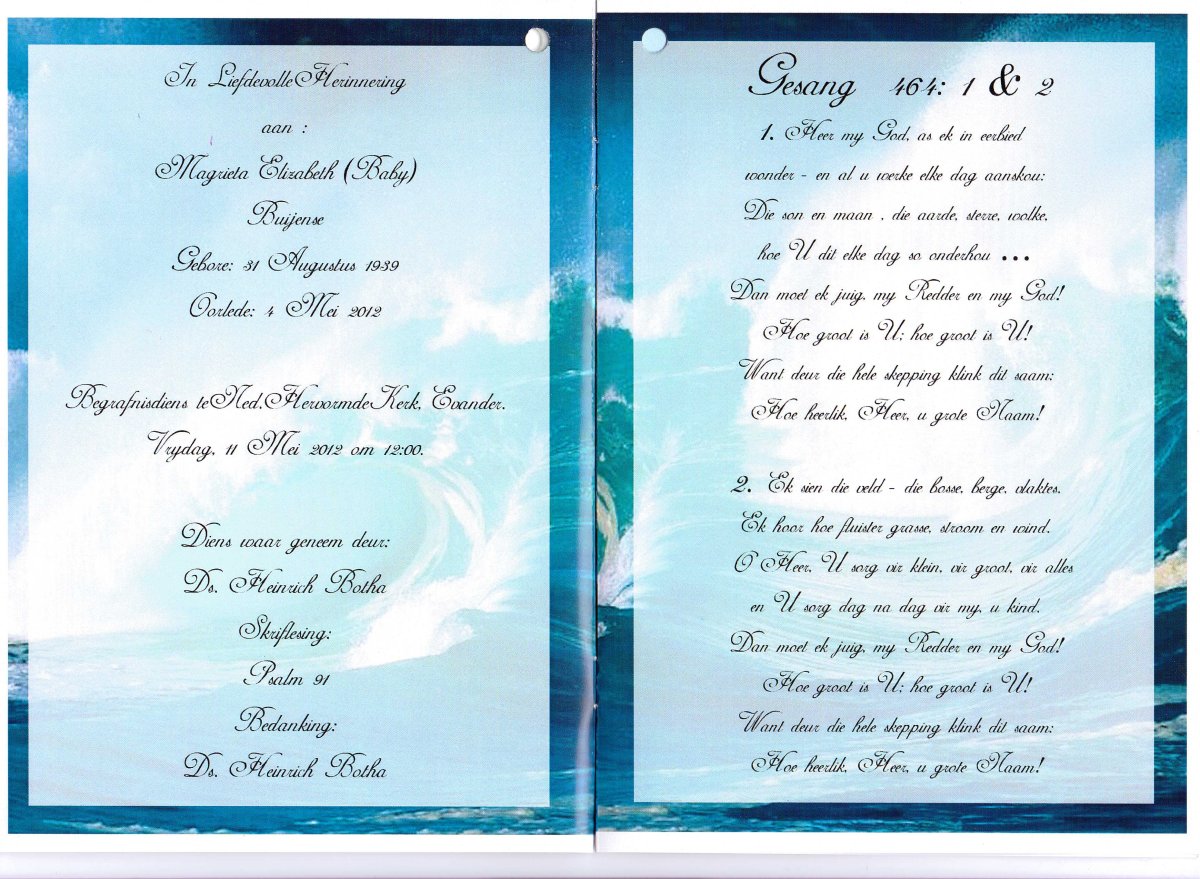 In Liefdevolle Herinnering
aan :
Magrieta Elizabeth (Baby)
Buijense
Gebore: 31 Augustus 1939
Oorlede: 4 Mei 2012
Begrafnisdiens te Ned. Hervormde Kerk, Evander.
Vrydag, 11 Mei 2012 om 12:00.
Diens waar geneem deur:
Ds. Heinrich Botha
Skriflesing:
Psalm 91
Bedanking:
Ds. Heinrich Botha
Gesang 464: 1 & 2
1. Heer my God, as ek in eerbied
wonder - en al u werke elke dag aanskou:
Die son en maan , die aarde, sterre, wolke,
hoe U dit elke dag so onderhou ...
Dan moet ek juig, my Redder en my God!
Hoe groot is U; hoe groot is U!
Want deur die hele skepping klink dit saam:
Hoe heerlik, Heer, u grote Naam!
2. Ek sien die veld - die bosse, berge, vlaktes.
Ek hoor hoe fluister grasse, stroom en wind.
O Heer, U sorg vir klein, vir groot, vir alles
en U sorg dag na dag vir my, u kind.
Dan moet ek juig, my Redder en my God!
Hoe groot is U; hoe groot is U!
Want deur die hele skepping klink dit saam:
Hoe heerlik, Heer, u grote Naam!